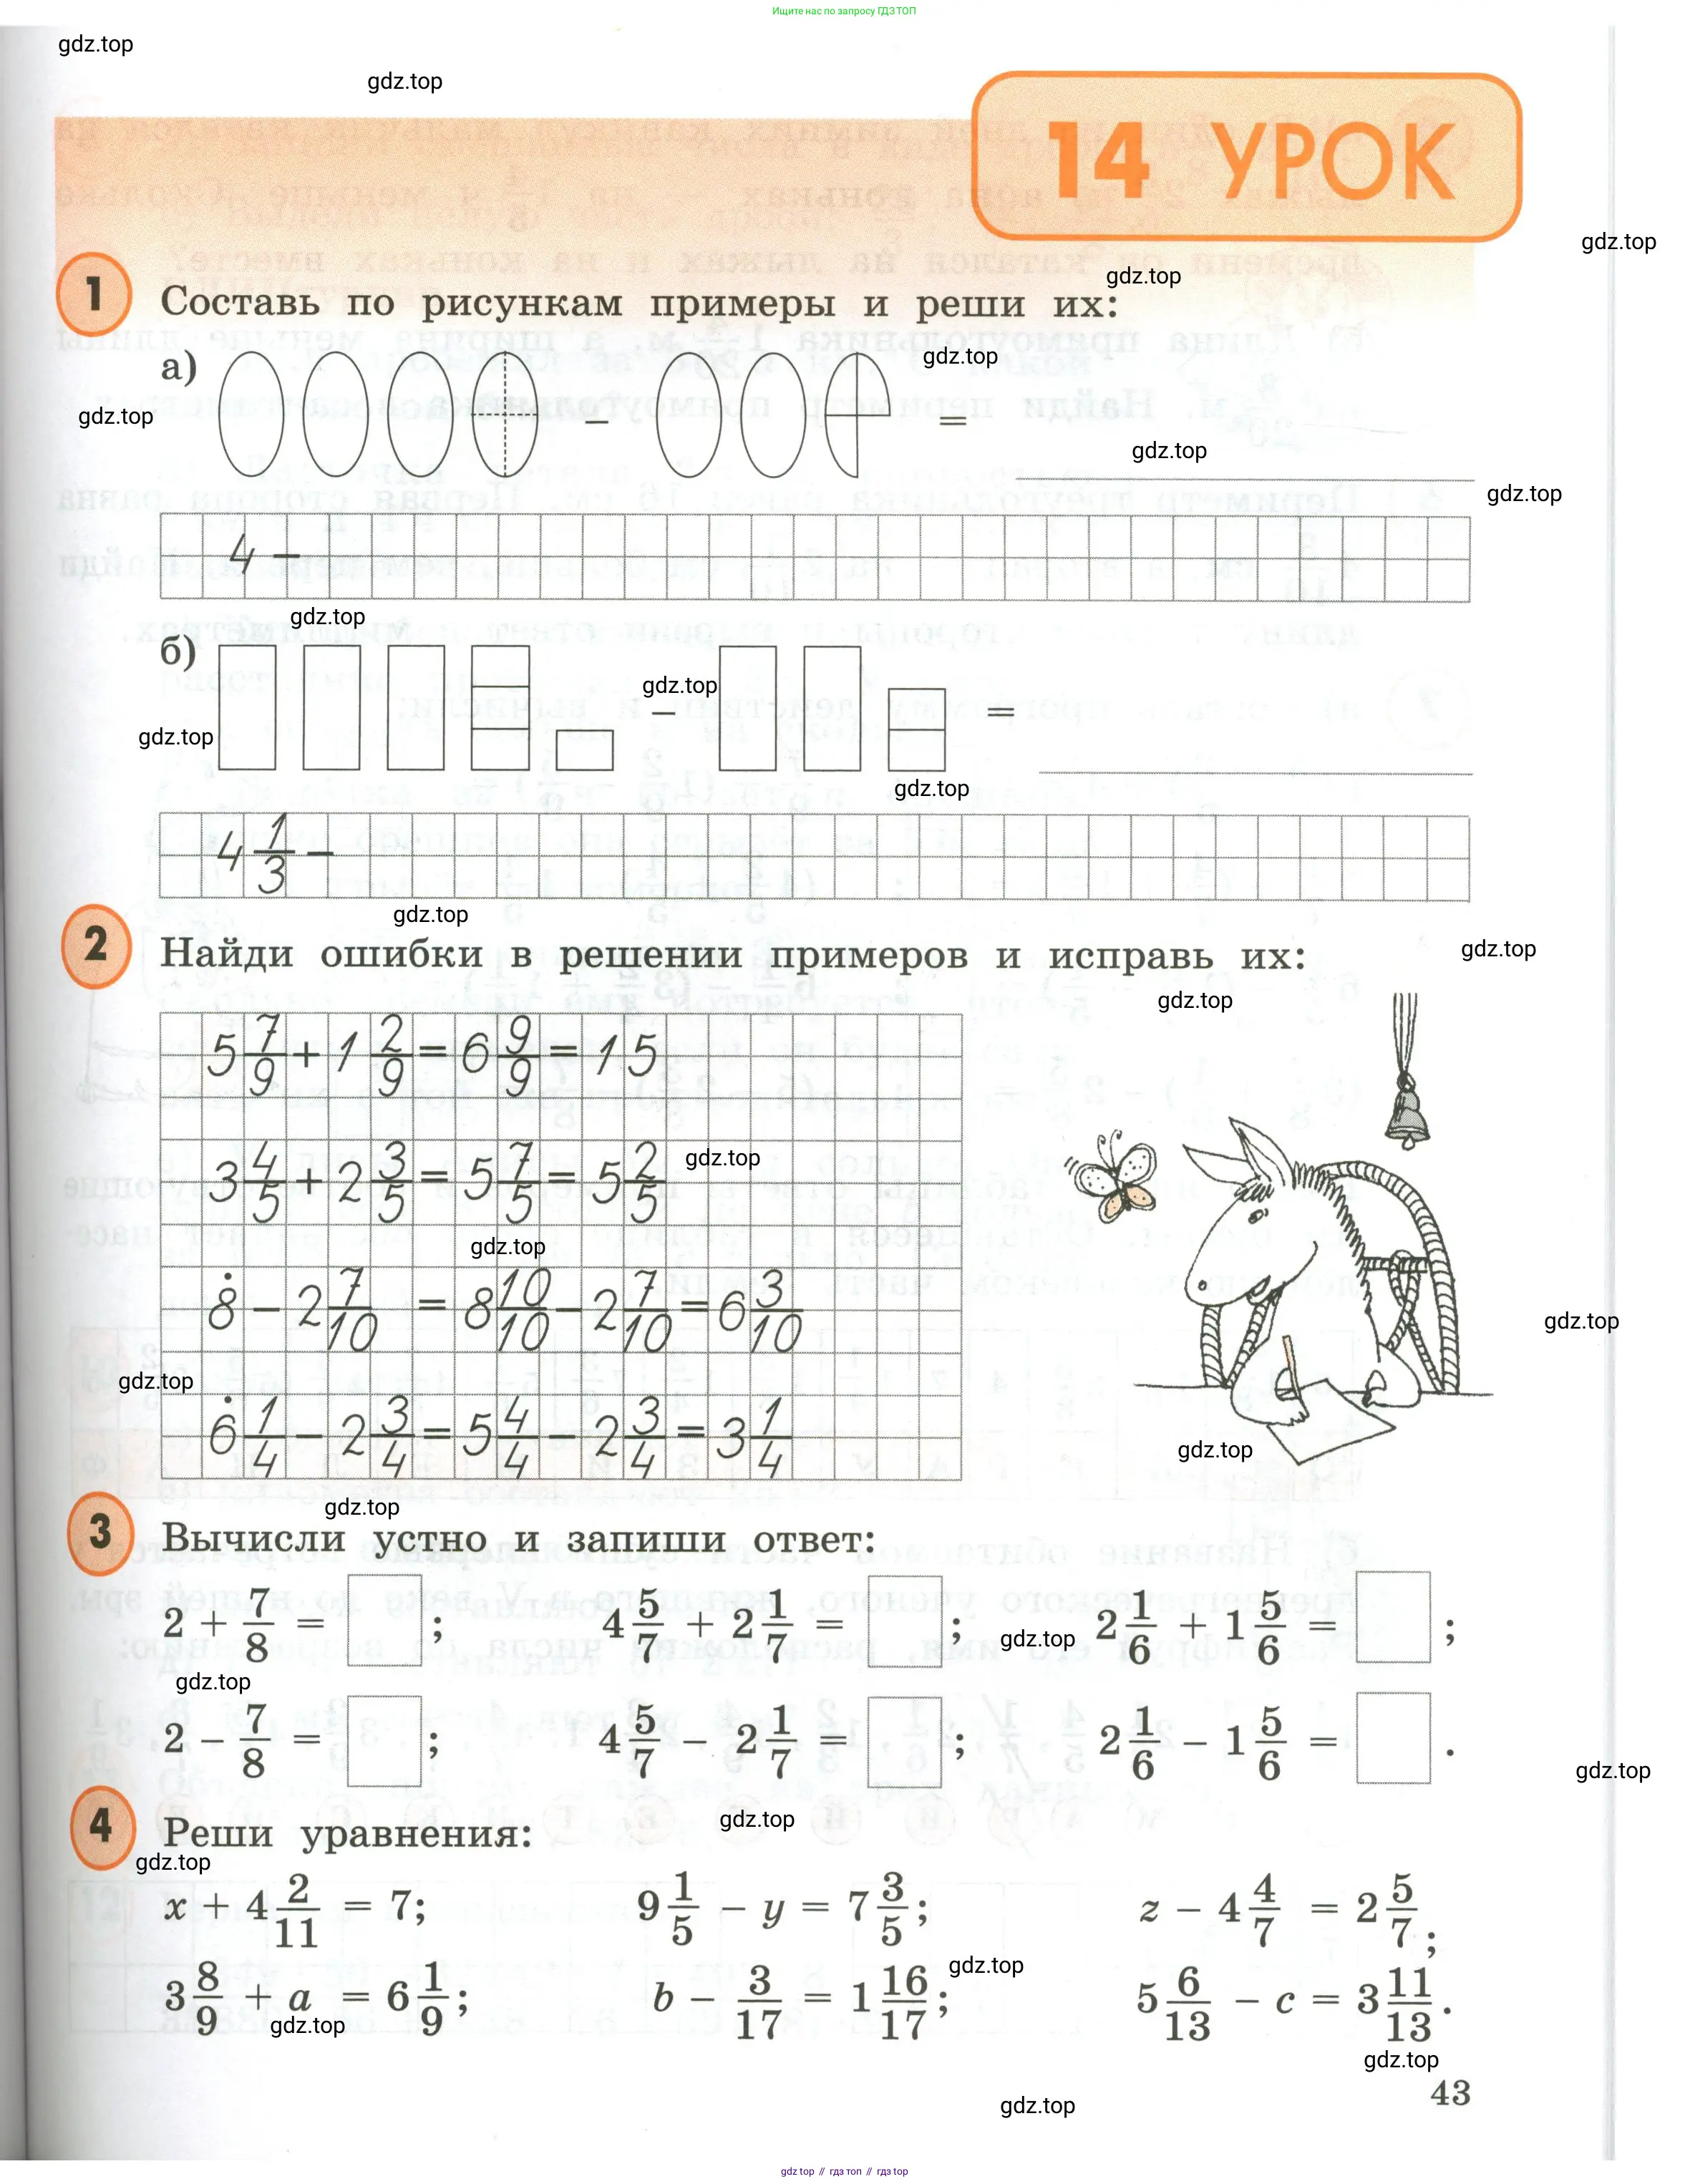 Ищите нас по запросу ГДЗ ТОП
gdz.top
gdz.top
14 УРОК
gdz.top
gdz.top
1 Составь по рисункам примеры и реши их:
gdz.top
а) – =
gdz.top
gdz.top
gdz.top
4 –
gdz.top
б) – =
gdz.top
gdz.top
gdz.top
4 1/3 –
gdz.top
2 Найди ошибки в решении примеров и исправь их:
gdz.top
gdz.top
5 7/9 + 1 2/9 = 6 9/9 = 15
3 4/5 + 2 3/5 = 5 7/5 = 5 2/5
gdz.top
gdz.top
8 – 2 7/10 = 8 10/10 – 2 7/10 = 6 3/10
gdz.top
gdz.top
6 1/4 – 2 3/4 = 5 4/4 – 2 3/4 = 3 1/4
gdz.top
gdz.top
3 Вычисли устно и запиши ответ:
2 + 7/8 = ; 4 5/7 + 2 1/7 = ; 2 1/6 + 1 5/6 = ;
gdz.top
gdz.top
2 – 7/8 = ; 4 5/7 – 2 1/7 = ; 2 1/6 – 1 5/6 = .
gdz.top
gdz.top
4 Реши уравнения:
gdz.top
x + 4 2/11 = 7; 9 1/5 – y = 7 3/5; z – 4 4/7 = 2 5/7;
gdz.top
3 8/9 + a = 6 1/9; b – 3/17 = 1 16/17; 5 6/13 – c = 3 11/13.
gdz.top
gdz.top
43
gdz.top
gdz top // гдз топ // gdz top